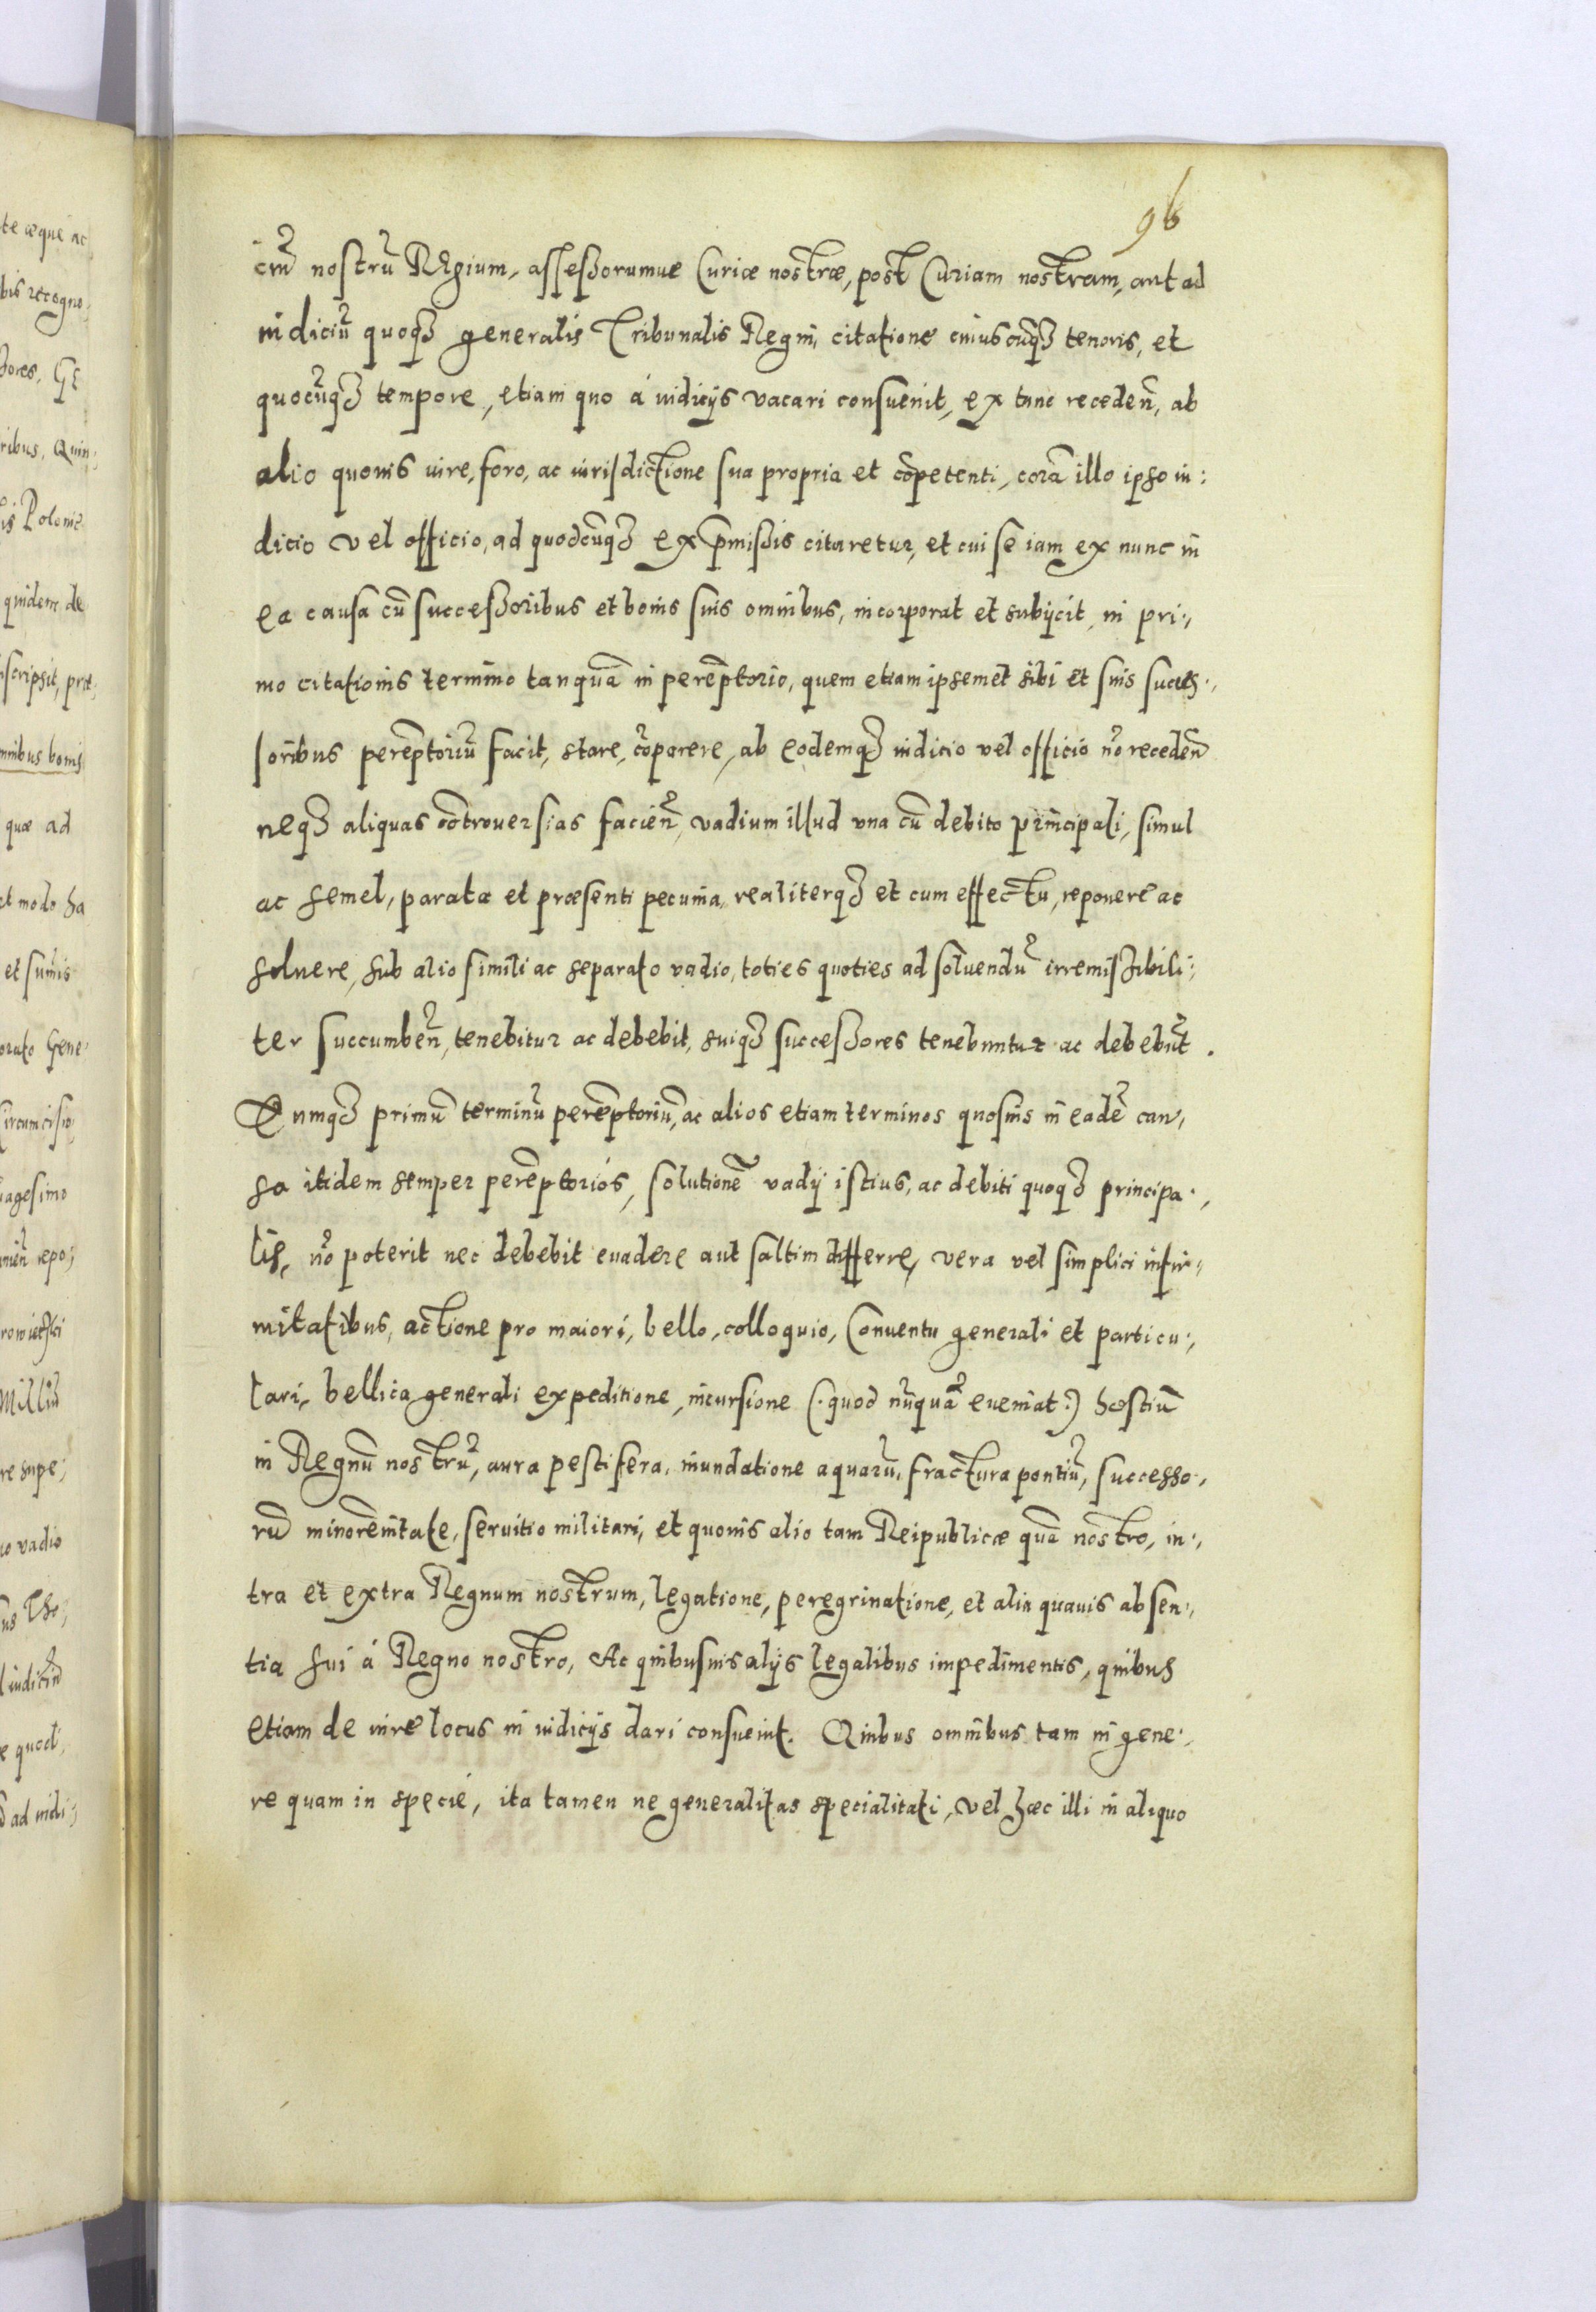 96
ciū nostrū Regium, assessorumue Curiæ nostræ, post Curiam nostram, aut ad
iudiciū quoq3 generalis Tribunalis Regni, citatione cuiuscūq3 tenoris, et
quocūq3 tempore, etiam quo á iudicijs vacari consueuit, ex tunc receden̄, ab
alio quouis iure, foro, ac iurisdictione sua propria et cōpetenti, corā illo ipso iu:
dicio vel officio, ad quodcūq3 ex p̄missis citaretur, et cui se iam ex nunc in
ea causa cū successoribus et bonis suis omnibus, incorporat et subijcit, in pri:,
mo citationis termino tanquā in perēptorio, quem etiam ipsemet sibi et suis succes:,
soribus perēptoriū facit, stare, cōparere, ab eodemq3 iudicio vel officio nō receden̄
neq3 aliquas cōtrouersias facien̄, vadium illud vna cū debito principali, simul
ac semel, parata et præsenti pecunia, realiterq3 et cum effectu, reponere ac
soluere, sub alio simili ac separato vadio, toties quoties ad soluendū irremissibili:,
ter succumben̄, tenebitur ac debebit, suiq3 successores tenebuntur ac debebūt.
Eumq3 primū terminū perēptoriū, ac alios etiam terminos quosuis in eadē cau,
sa itidem semper perēptoriós, solutionē vadij istius, ac debiti quoq3 principa:,
lis, nō poterit nec debebit euadere aut saltim differre, vera vel simplici infir:,
mitatibus, actione pro maiori, bello, colloquio, Conuentu generali et particu:,
lari, bellica generali expeditione, incursione (: quod nūquā eueniat :) hostiū
in Regnū nostrū, aura pestifera, inundatione aquarū, fractura pontiū, successo:,
rū minorēnitate, seruitio militari, et quouis alio tam Reipublicæ quā nostro, in:,
tra et extra Regnum nostrum, legatione, peregrinatione, et alia quauis absen:,
tia sui á Regno nostro, Ac quibusuis alijs legalibus impedimentis, quibus
etiam de iure locus in iudicijs dari consueuit. Quibus omnibus tam in gene:,
re quam in specie, ita tamen ne generalitas specialitati, vel hæc illi in aliquo